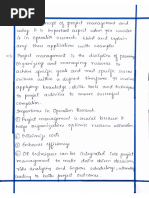 concept of project management and
why it is important aspect when you consider
is in operation research. List and explain
any their application with example.
Project management is the discipline of planning
Organizing and managing resources to
achieve specific goals and meet specific success
applying knowledge, skills tools and techniques
to project activities to ensure successful
completion.
Importance in Operation Research:
Project management is crucial because it
helps organization optimize resource allocation
Minimize costs
Enhance efficiency
OR techniques can be integrated into project
management to make data driven decisions
risk analysis and improve scheduling, ultimately
leading to better project outcomes.